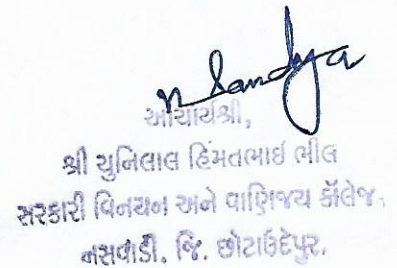 આચાર્યશ્રી,
શ્રી ચુનિલાલ હિંમતભાઈ ભીલ
સરકારી વિનયન અને વાણિજ્ય કૉલેજ,
નસવાડી, જિ. છોટાઉદેપુર.